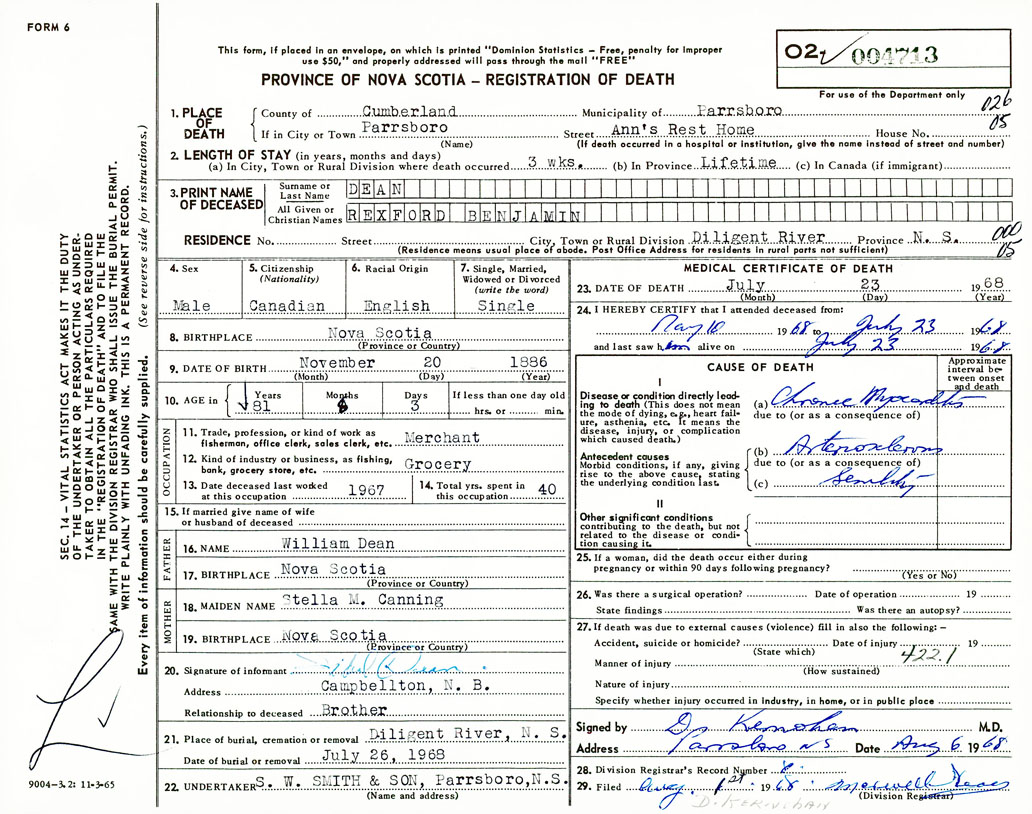 FORM 6
This form, if placed in an envelope, on which is printed "Dominion Statistics – Free, penalty for improper
use $50," and properly addressed will pass through the mail "FREE"
PROVINCE OF NOVA SCOTIA – REGISTRATION OF DEATH
02 004713
For use of the Department only
026
05
1. PLACE OF DEATH
County of Cumberland Municipality of Parrsboro
If in City or Town Parrsboro Street Ann's Rest Home House No.
(Name) (If death occurred in a hospital or institution, give the name instead of street and number)
2. LENGTH OF STAY (in years, months and days)
(a) In City, Town or Rural Division where death occurred 3 wks. (b) In Province Lifetime (c) In Canada (if immigrant)
3. PRINT NAME OF DECEASED
Surname or Last Name DEAN
All Given or Christian Names REXFORD BENJAMIN
RESIDENCE No. Street City, Town or Rural Division Diligent River Province N. S.
(Residence means usual place of abode. Post Office Address for residents in rural parts not sufficient)
000
05
4. Sex
Male
5. Citizenship
(Nationality)
Canadian
6. Racial Origin
English
7. Single, Married,
Widowed or Divorced
(write the word)
Single
8. BIRTHPLACE Nova Scotia
(Province or Country)
9. DATE OF BIRTH November 20 1886
(Month) (Day) (Year)
10. AGE in Years Months Days If less than one day old
81 8 3 hrs. or min.
OCCUPATION
11. Trade, profession, or kind of work as
fisherman, office clerk, sales clerk, etc. Merchant
12. Kind of industry or business, as fishing,
bank, grocery store, etc. Grocery
13. Date deceased last worked
at this occupation 1967
14. Total yrs. spent in
this occupation 40
15. If married give name of wife
or husband of deceased
FATHER
16. NAME William Dean
17. BIRTHPLACE Nova Scotia
(Province or Country)
MOTHER
18. MAIDEN NAME Stella M. Canning
19. BIRTHPLACE Nova Scotia
(Province or Country)
20. Signature of informant Dean
Address Campbellton, N. B.
Relationship to deceased Brother
21. Place of burial, cremation or removal Diligent River, N. S.
Date of burial or removal July 26, 1968
22. UNDERTAKER S. W. SMITH & SON, Parrsboro,N.S.
(Name and address)
MEDICAL CERTIFICATE OF DEATH
23. DATE OF DEATH July 23 1968
(Month) (Day) (Year)
24. I HEREBY CERTIFY that I attended deceased from:
May 10 1968 to July 23 1968
and last saw him alive on July 23 1968
CAUSE OF DEATH
Approximate
interval be-
tween onset
and death
I
Disease or condition directly lead-
ing to death (This does not mean
the mode of dying, e.g., heart fail-
ure, asthenia, etc. It means the
disease, injury, or complication
which caused death.)
(a) Chronic Myocarditis
due to (or as a consequence of)
Antecedent causes
Morbid conditions, if any, giving
rise to the above cause, stating
the underlying condition last.
(b) Arteriosclerosis
due to (or as a consequence of)
(c) Senility
II
Other significant conditions
contributing to the death, but not
related to the disease or condi-
tion causing it.
25. If a woman, did the death occur either during
pregnancy or within 90 days following pregnancy?
(Yes or No)
26. Was there a surgical operation? Date of operation 19
State findings Was there an autopsy?
27. If death was due to external causes (violence) fill in also the following: –
Accident, suicide or homicide? Date of injury 19
(State which) 422.1
Manner of injury
(How sustained)
Nature of injury
Specify whether injury occurred in Industry, in home, or in public place
Signed by M.D.
Address Parrsboro NS Date Aug 6 1968
28. Division Registrar's Record Number 8
29. Filed Aug. 1st 1968
(Division Registrar)
SEC. 14 – VITAL STATISTICS ACT MAKES IT THE DUTY
OF THE UNDERTAKER OR PERSON ACTING AS UNDER-
TAKER TO OBTAIN ALL THE PARTICULARS REQUIRED
IN THE "REGISTRATION OF DEATH" AND TO FILE THE
SAME WITH THE DIVISION REGISTRAR WHO SHALL ISSUE THE BURIAL PERMIT.
WRITE PLAINLY WITH UNFADING INK. THIS IS A PERMANENT RECORD.
Every item of information should be carefully supplied. (See reverse side for instructions.)
9004–3.2: 11-3-65